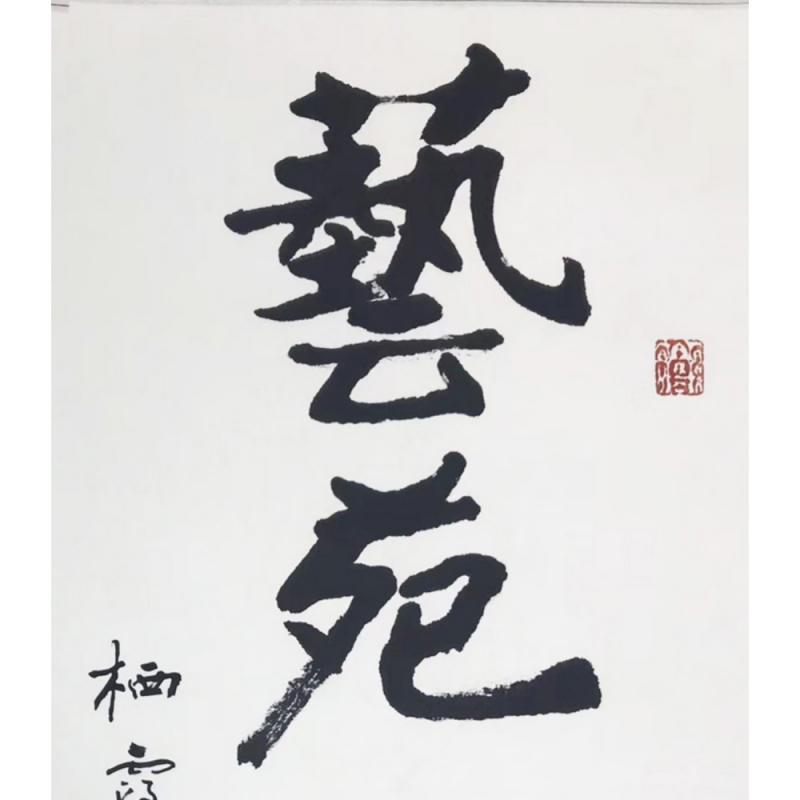 藝苑
栖霞